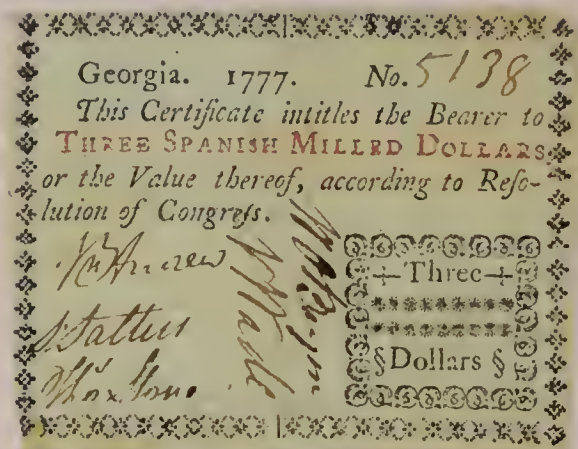 Georgia. 1777. No. 5138
This Certificate intitles the Bearer to
THREE SPANISH MILLED DOLLARS,
or the Value thereof, according to Reſo-
lution of Congreſs.
Three
§Dollars §